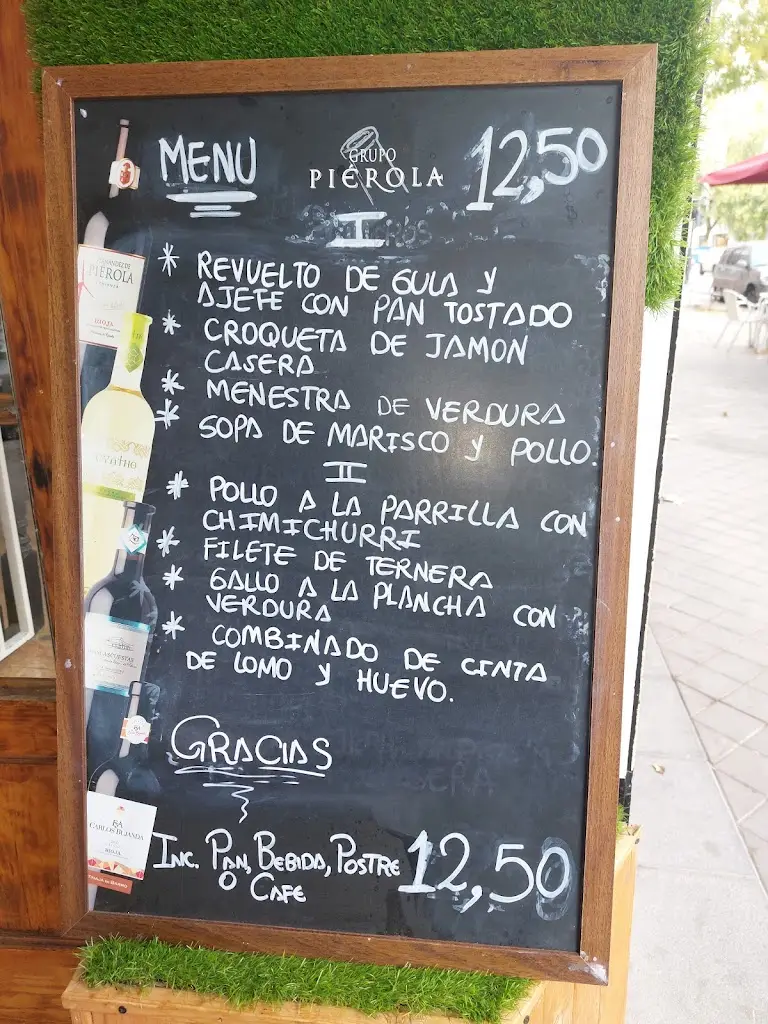 MENU
GRUPO
PIÉROLA
12,50
I
* REVUELTO DE GULA Y
AJETE CON PAN TOSTADO
* CROQUETA DE JAMON
CASERA
* MENESTRA DE VERDURA
* SOPA DE MARISCO Y POLLO.
II
* POLLO A LA PARRILLA CON
CHIMICHURRI
* FILETE DE TERNERA
* GALLO A LA PLANCHA CON
VERDURA
* COMBINADO DE CINTA
DE LOMO Y HUEVO.
GRACIAS
INC. PAN, BEBIDA, POSTRE
O CAFE
12,50
PIÉROLA
RIOJA
CARLOS BUJANDA
RIOJA